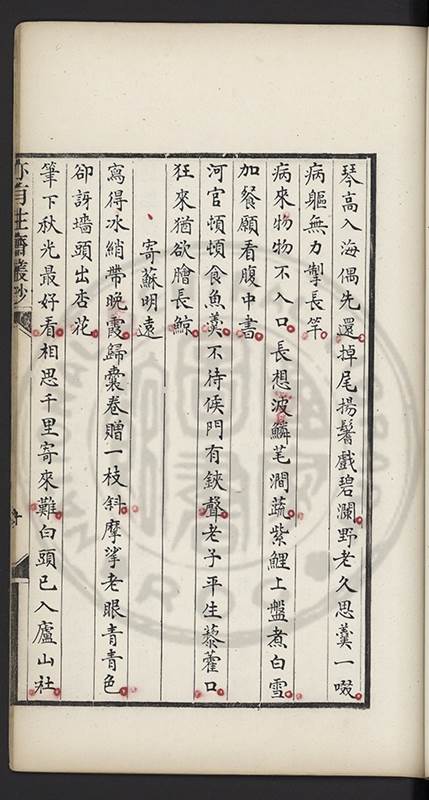 琴高入海偶先還掉尾揚鬐戲碧瀾野老久思羹一啜
病軀無力掣長竿
病來物物不入口長想波鱗芼澗蔬紫鯉上盤煮白雪
加餐願看腹中書
河官頓頓食魚羹不待侯門有鋏聲老子平生藜藿口
狂來猶欲膾長鯨
寄蘇明遠
寫得冰綃帶晚霞歸囊卷贈一枝斜摩挲老眼青青色
卻訝墻頭出杏花
筆下秋光最好看相思千里寄來難白頭已入廬山社
亦有生齋叢鈔